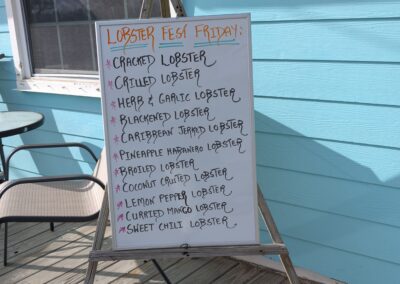 LOBSTER FEST FRIDAY:
* CRACKED LOBSTER
* GRILLED LOBSTER
* HERB & GARLIC LOBSTER
* BLACKENED LOBSTER
* CARIBBEAN JERKED LOBSTER
* PINEAPPLE HABANERO LOBSTER
* BROILED LOBSTER
* COCONUT CRUSTED LOBSTER
* LEMON PEPPER LOBSTER
* CURRIED MANGO LOBSTER
* SWEET CHILI LOBSTER